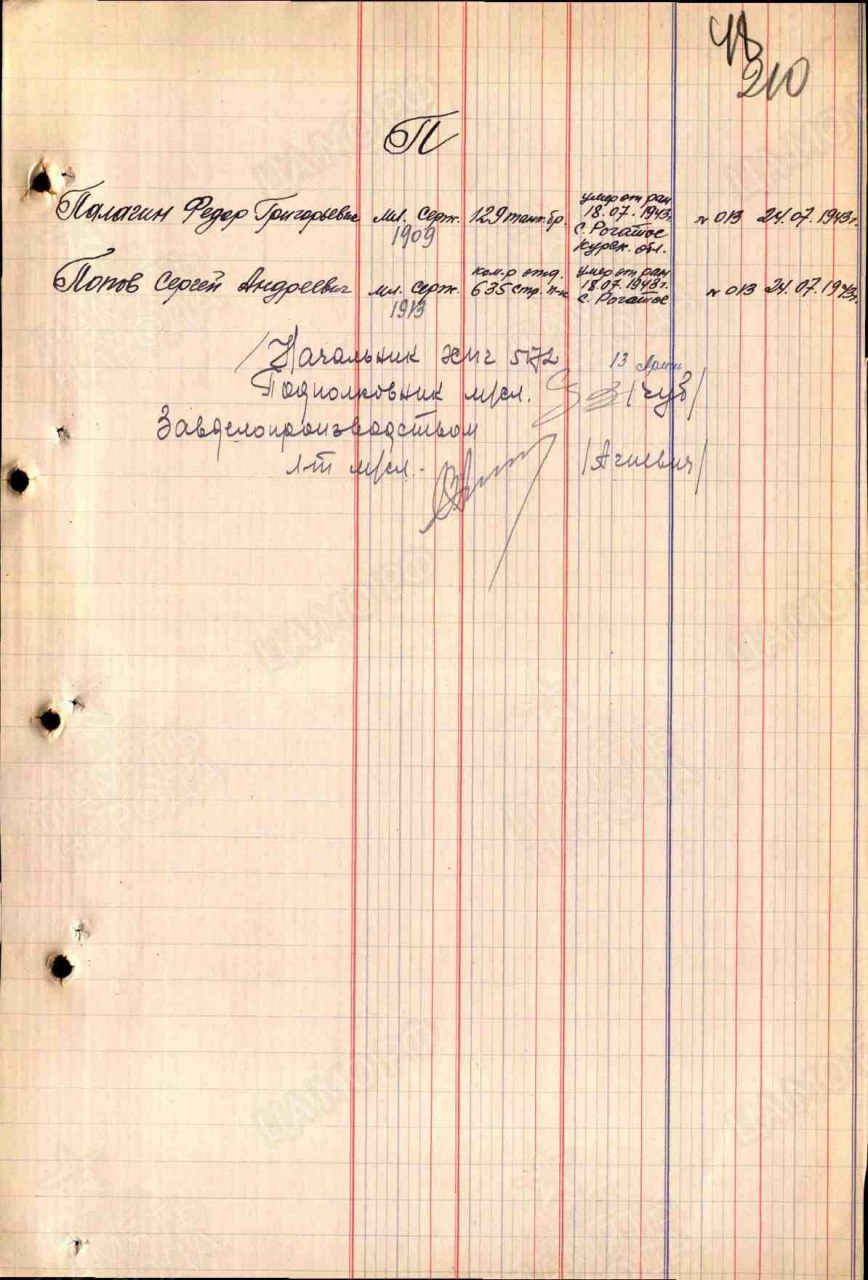 210
П
Палагин Федор Григорьевич мл. Серж. 1909 129 танк. бр. умер от ран 18.07.1943г. с. Рогатое Курск. обл. № 013 24.07.1943г.
Попов Сергей Андреевич мл. Серж. 1913 ком-р отд. 635 стр. п-к умер от ран 18.07.1943г. с. Рогатое № 013 24.07.1943г.
/Начальник хмг 5172 13 Армии
Подполковник м/сл. /Чуб/
Завделопроизводством
л-т м/сл. - /Агиевич/